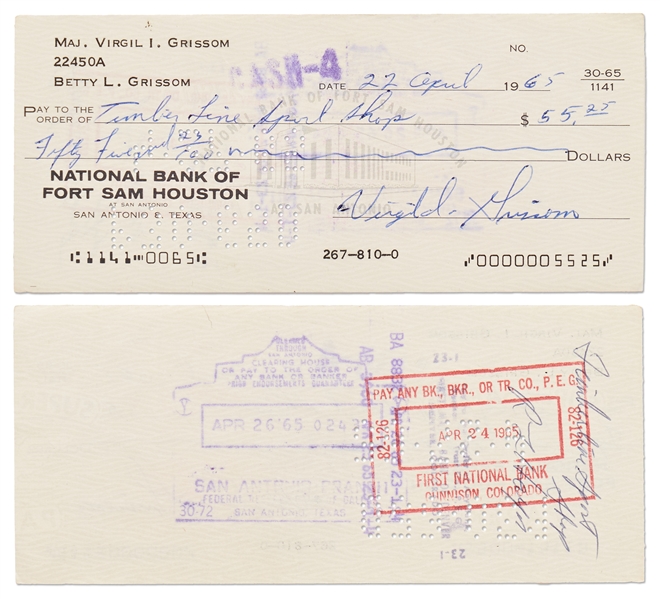 MAJ. VIRGIL I. GRISSOM
22450A
BETTY L. GRISSOM
CASH-A
NO.
DATE 22 April 1965
30-65
1141
PAY TO THE
ORDER OF Timber Line Sport Shop $ 55.25
Fifty Five and 25/100 DOLLARS
NATIONAL BANK OF FORT SAM HOUSTON
AT SAN ANTONIO
NATIONAL BANK OF
FORT SAM HOUSTON
AT SAN ANTONIO
SAN ANTONIO 8, TEXAS
Virgil I. Grissom
1141 0065
267-810-0
0000005525
CLEARING HOUSE
OR PAY TO THE ORDER OF
ANY BANK OR BANKER
PRIOR ENDORSEMENTS GUARANTEED
APR 26'65
SAN ANTONIO
30-72 SAN ANTONIO, TEXAS
23-1
PAY ANY BK., BKR., OR TR. CO., P. E. G.
82-126
APR 24 1965
82-126
FIRST NATIONAL BANK
GUNNISON, COLORADO
23-1
Timberline Sport
Shop